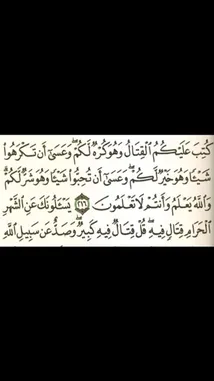 كُتِبَ عَلَيْكُمُ ٱلْقِتَالُ وَهُوَ كُرْهٌ لَّكُمْ ۖ وَعَسَىٰٓ أَن تَكْرَهُوا۟
شَيْـًٔا وَهُوَ خَيْرٌ لَّكُمْ ۖ وَعَسَىٰٓ أَن تُحِبُّوا۟ شَيْـًٔا وَهُوَ شَرٌّ لَّكُمْ ۗ
وَٱللَّهُ يَعْلَمُ وَأَنتُمْ لَا تَعْلَمُونَ ۝٢١٦ يَسْـَٔلُونَكَ عَنِ ٱلشَّهْرِ
ٱلْحَرَامِ قِتَالٍ فِيهِ ۖ قُلْ قِتَالٌ فِيهِ كَبِيرٌ ۖ وَصَدٌّ عَن سَبِيلِ ٱللَّهِ